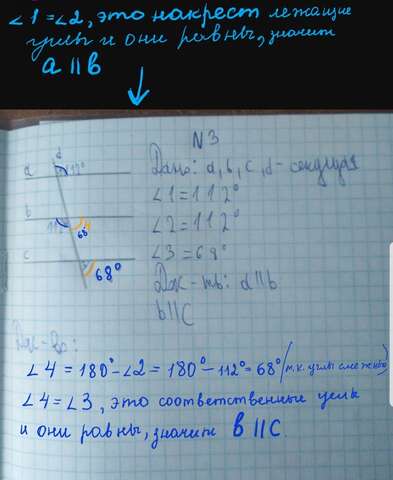 ∠1=∠2, это накрест лежащие
углы и они равны, значит
a ∥ b
N3
Дано: a, b, c, d - секущая
d
112°
a
∠1=112°
b
112
68°
∠2=112°
c
68°
∠3=68°
Док-ть: a∥b
b∥c
Док-во:
∠4=180°-∠2=180°-112°=68° (т.к. углы смежные)
∠4=∠3, это соответственные углы
и они равны, значит b∥c.